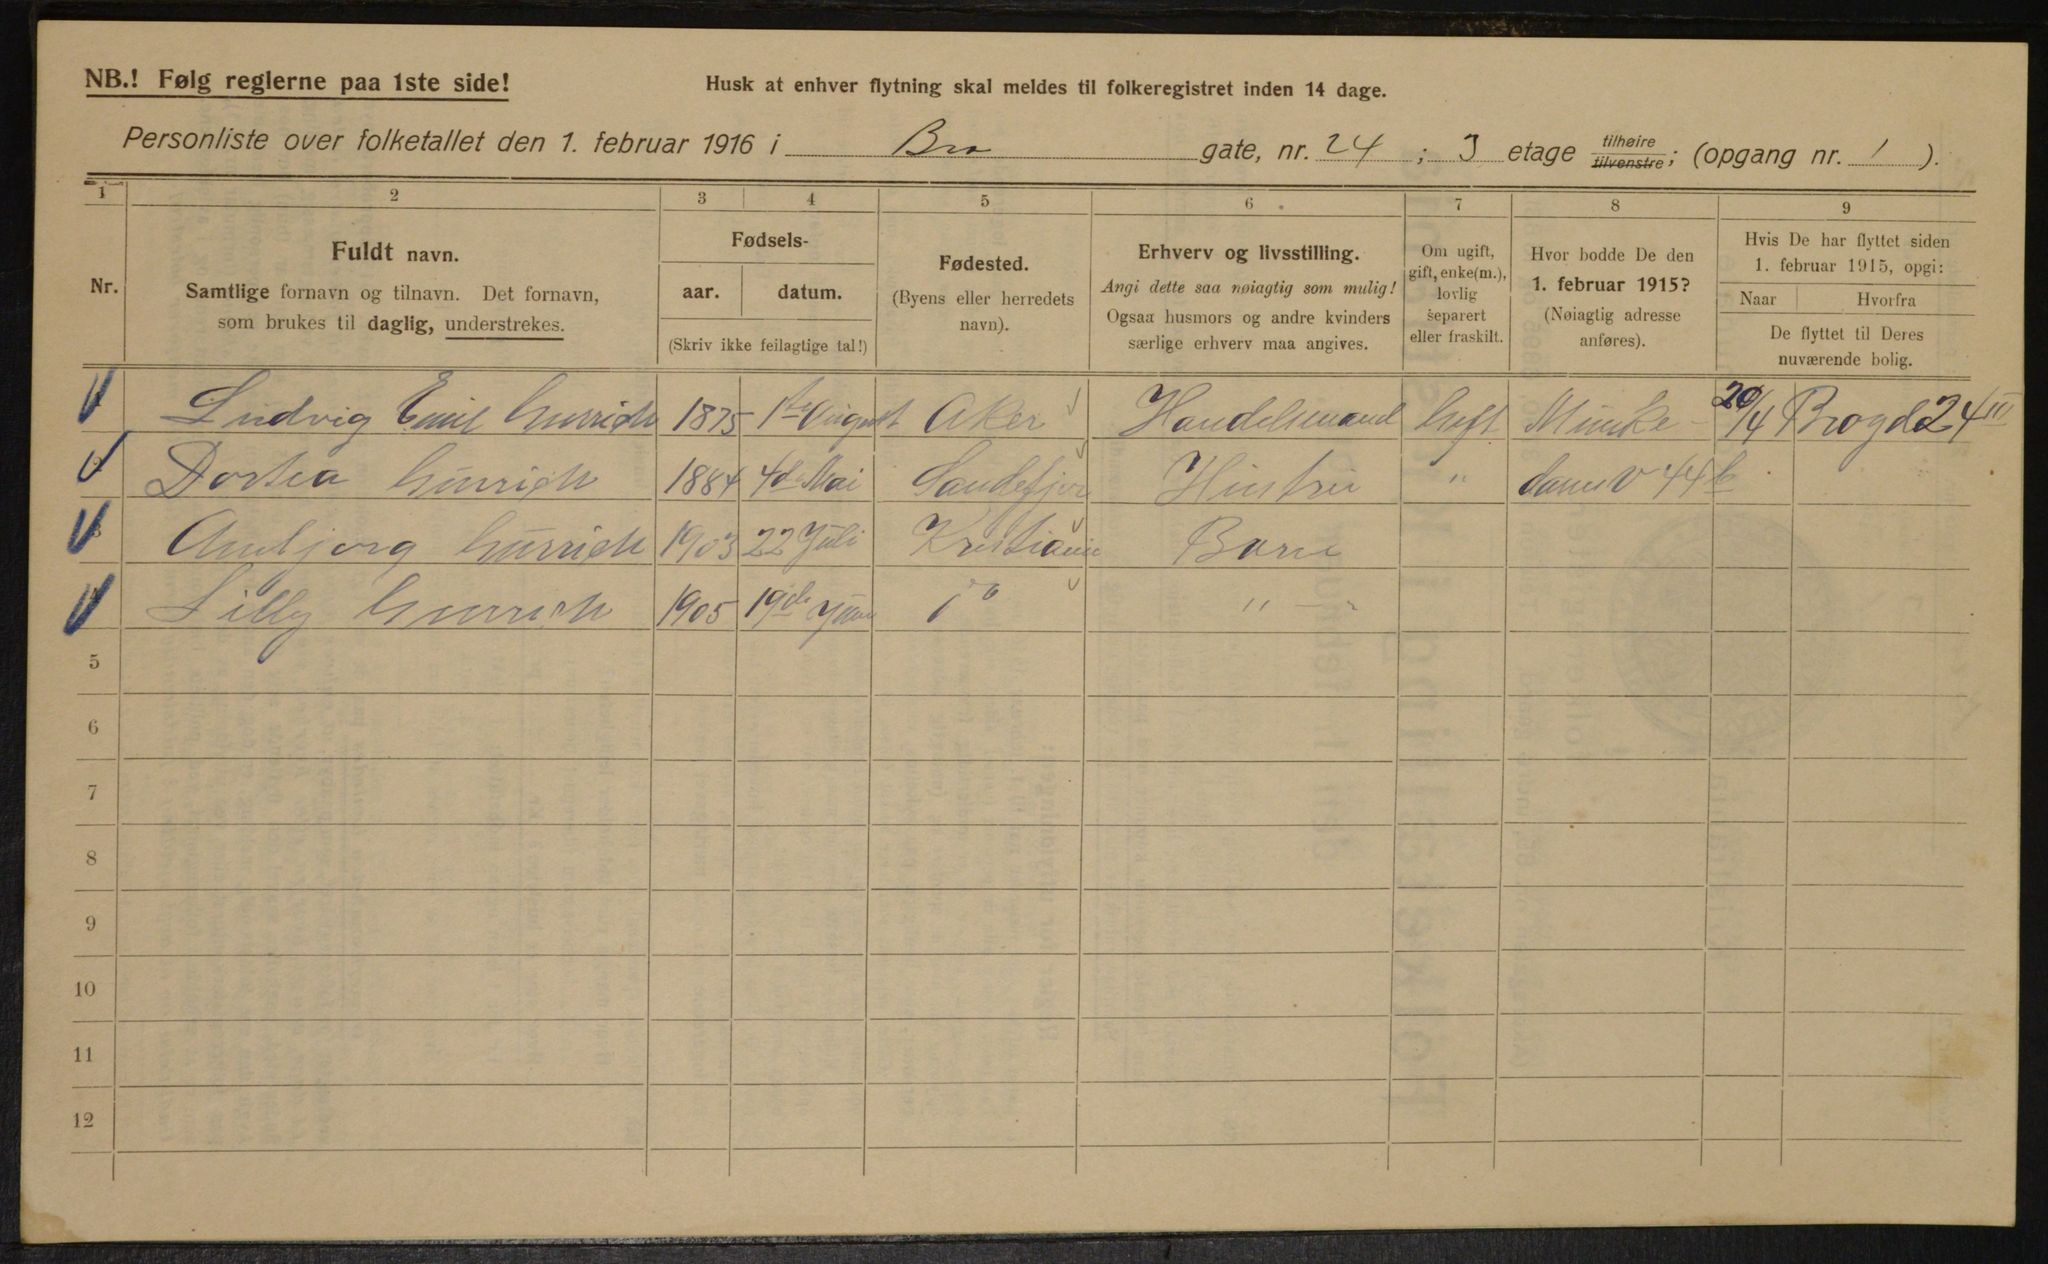 NB.! Følg reglerne paa 1ste side!
Husk at enhver flytning skal meldes til folkeregistret inden 14 dage.
Personliste over folketallet den 1. februar 1916 i Bro gate, nr. 24 ; 3 etage tilhøire tilvenstre; (opgang nr. 1 ).
1 2 3 4 5 6 7 8 9
Nr.
Fuldt navn.
Samtlige fornavn og tilnavn. Det fornavn,
som brukes til daglig, understrekes.
Fødsels-
aar. datum.
(Skriv ikke feilagtige tal!)
Fødested.
(Byens eller herredets
navn).
Erhverv og livsstilling.
Angi dette saa nøiagtig som mulig!
Ogsaa husmors og andre kvinders
særlige erhverv maa angives.
Om ugift,
gift, enke(m.),
lovlig
separert
eller fraskilt.
Hvor bodde De den
1. februar 1915?
(Nøiagtig adresse
anføres).
Hvis De har flyttet siden
1. februar 1915, opgi:
Naar Hvorfra
De flyttet til Deres
nuværende bolig.
Ludvig Emil 1875 1ste August Aker Handelsmand Munke- 20/4 Brogd 24 III
Dortea 1884 4de Mai Sandefjor Hustru " 44
3 1903 22 Juli Kristiania Barn
Lilly 1905 19de " - "
5
6
7
8
9
10
11
12